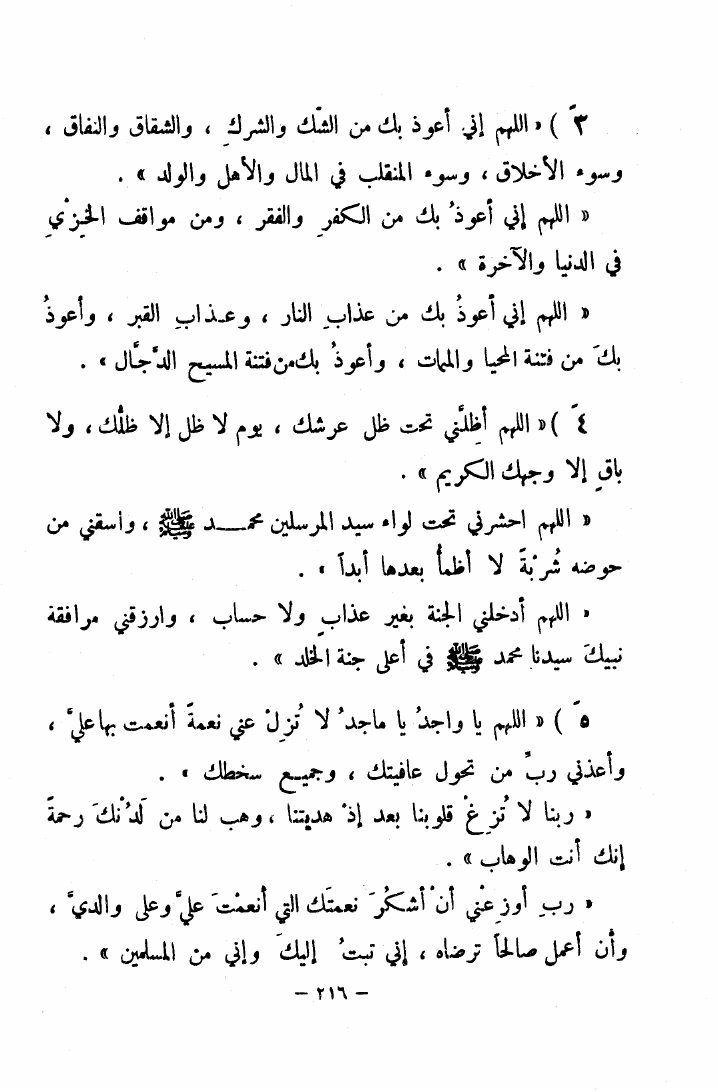 ٣ً ) « اللهم إني أعوذ بك من الشّك والشركِ ، والشقاق والنفاق ،
وسوء الأخلاق ، وسوء المنقلب في المال والأهل والولد » .
« اللهم إني أعوذُ بك من الكفرِ والفقر ، ومن مواقف الخِزْيِ
في الدنيا والآخرة » .
« اللهم إني أعوذُ بك من عذابِ النار ، وعـذابِ القبر ، وأعوذُ
بكَ من فتنة المحيا والممات ، وأعوذُ بك من فتنة المسيح الدَّجَّال » .
٤ً ) « اللهم أظِلَّني تحت ظل عرشك ، يوم لا ظل إلا ظلُّك ، ولا
باقٍ إلا وجهك الكريم » .
« اللهم احشرني تحت لواء سيد المرسلين محمـــد ﷺ ، واسقني من
حوضه شُرْبَةً لا أظمأُ بعدها أبداً » .
« اللهم أدخلني الجنة بغير عذابٍ ولا حساب ، وارزقني مرافقة
نبيكَ سيدنا محمد ﷺ في أعلى جنة الخلد » .
٥ً ) « اللهم يا واجدُ يا ماجدُ لا تُزِلْ عني نعمةً أنعمت بها عليَّ ،
وأعذني ربِّ من تحول عافيتك ، وجميـع سخطك » .
« ربنا لا تُزِغْ قلوبنا بعد إذْ هديتنا ، وهب لنا من لَدُنْكَ رحمةً
إنك أنت الوهاب » .
« ربِ أوزِعْني أنْ أشكُرَ نعمتَك التي أنعمْتَ عليَّ وعلى والديَّ ،
وأن أعمل صالحاً ترضاه ، إني تبتُ إليكَ وإني من المسلمين » .
– ٢١٦ –